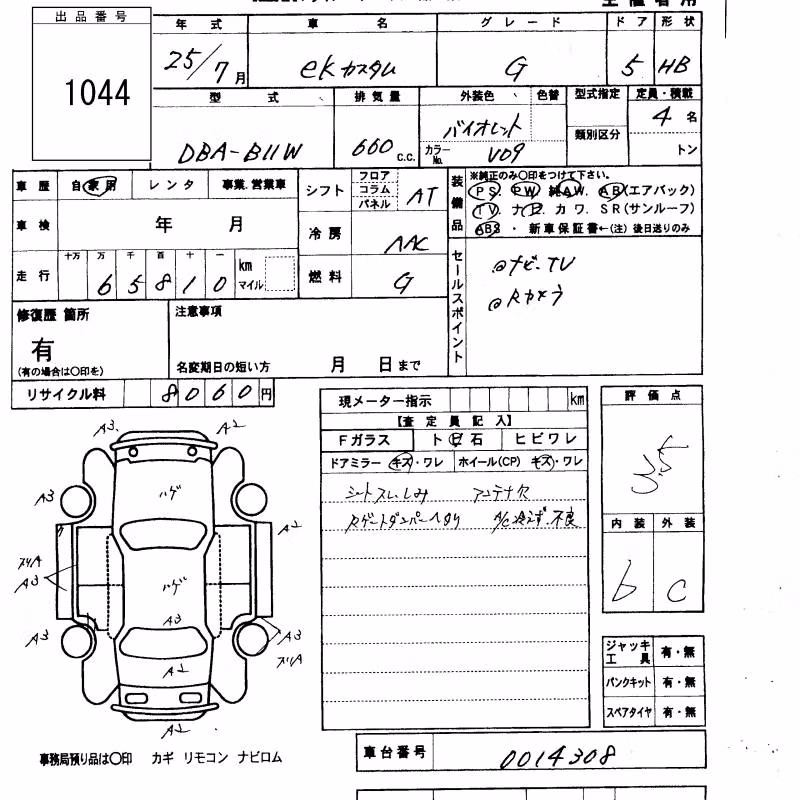 出品番号
1044
年式 車名 グレード ドア 形状
25/7月 ekカスタム G 5 HB
型式 排気量 外装色 色替 型式指定 定員・積載
DBA-B11W 660 c.c. バイオレット 類別区分 4名
カラーNo. V09 トン
車歴 自家用 レンタ 事業.営業車
シフト フロア コラム パネル AT
装備品 ※純正のみ〇印をつけて下さい。
PS PW 純AW. AB(エアバック)
TV. ナビ. カワ. SR(サンルーフ)
ABS ・ 新車保証書←(注) 後日送りのみ
車検 年 月
冷房 AAC
走行 十万 万 千 百 十 一 km マイル
6 5 8 1 0
燃料 G
セールスポイント
@ナビ.TV
@Rカメラ
修復歴 箇所
有
(有の場合は〇印を)
注意事項
名変期日の短い方 月 日まで
リサイクル料 8060円
現メーター指示 km
【査定員記入】
Fガラス ト飛石 ヒビワレ
ドアミラー キズ・ワレ ホイール(CP) キズ・ワレ
シートスレ.しみ アンテナ欠
Rゲートダンパーヘタリ A/C冷えず.不良
評価点
3.5
内装 外装
b C
ジャッキ工具 有・無
パンクキット 有・無
スペアタイヤ 有・無
A3 A2
A3 ハゲ A2
スリA
A3 ハゲ
A3 A3 A3
A2 スリA
A2
事務局預り品は〇印 カギ リモコン ナビロム
車台番号 0014308